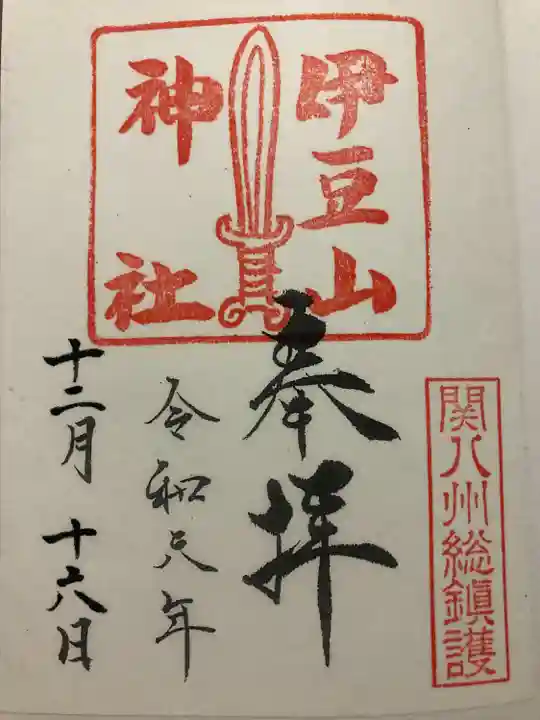 関八州総鎮護
伊豆山
神社
奉拝
令和元年
十二月十六日